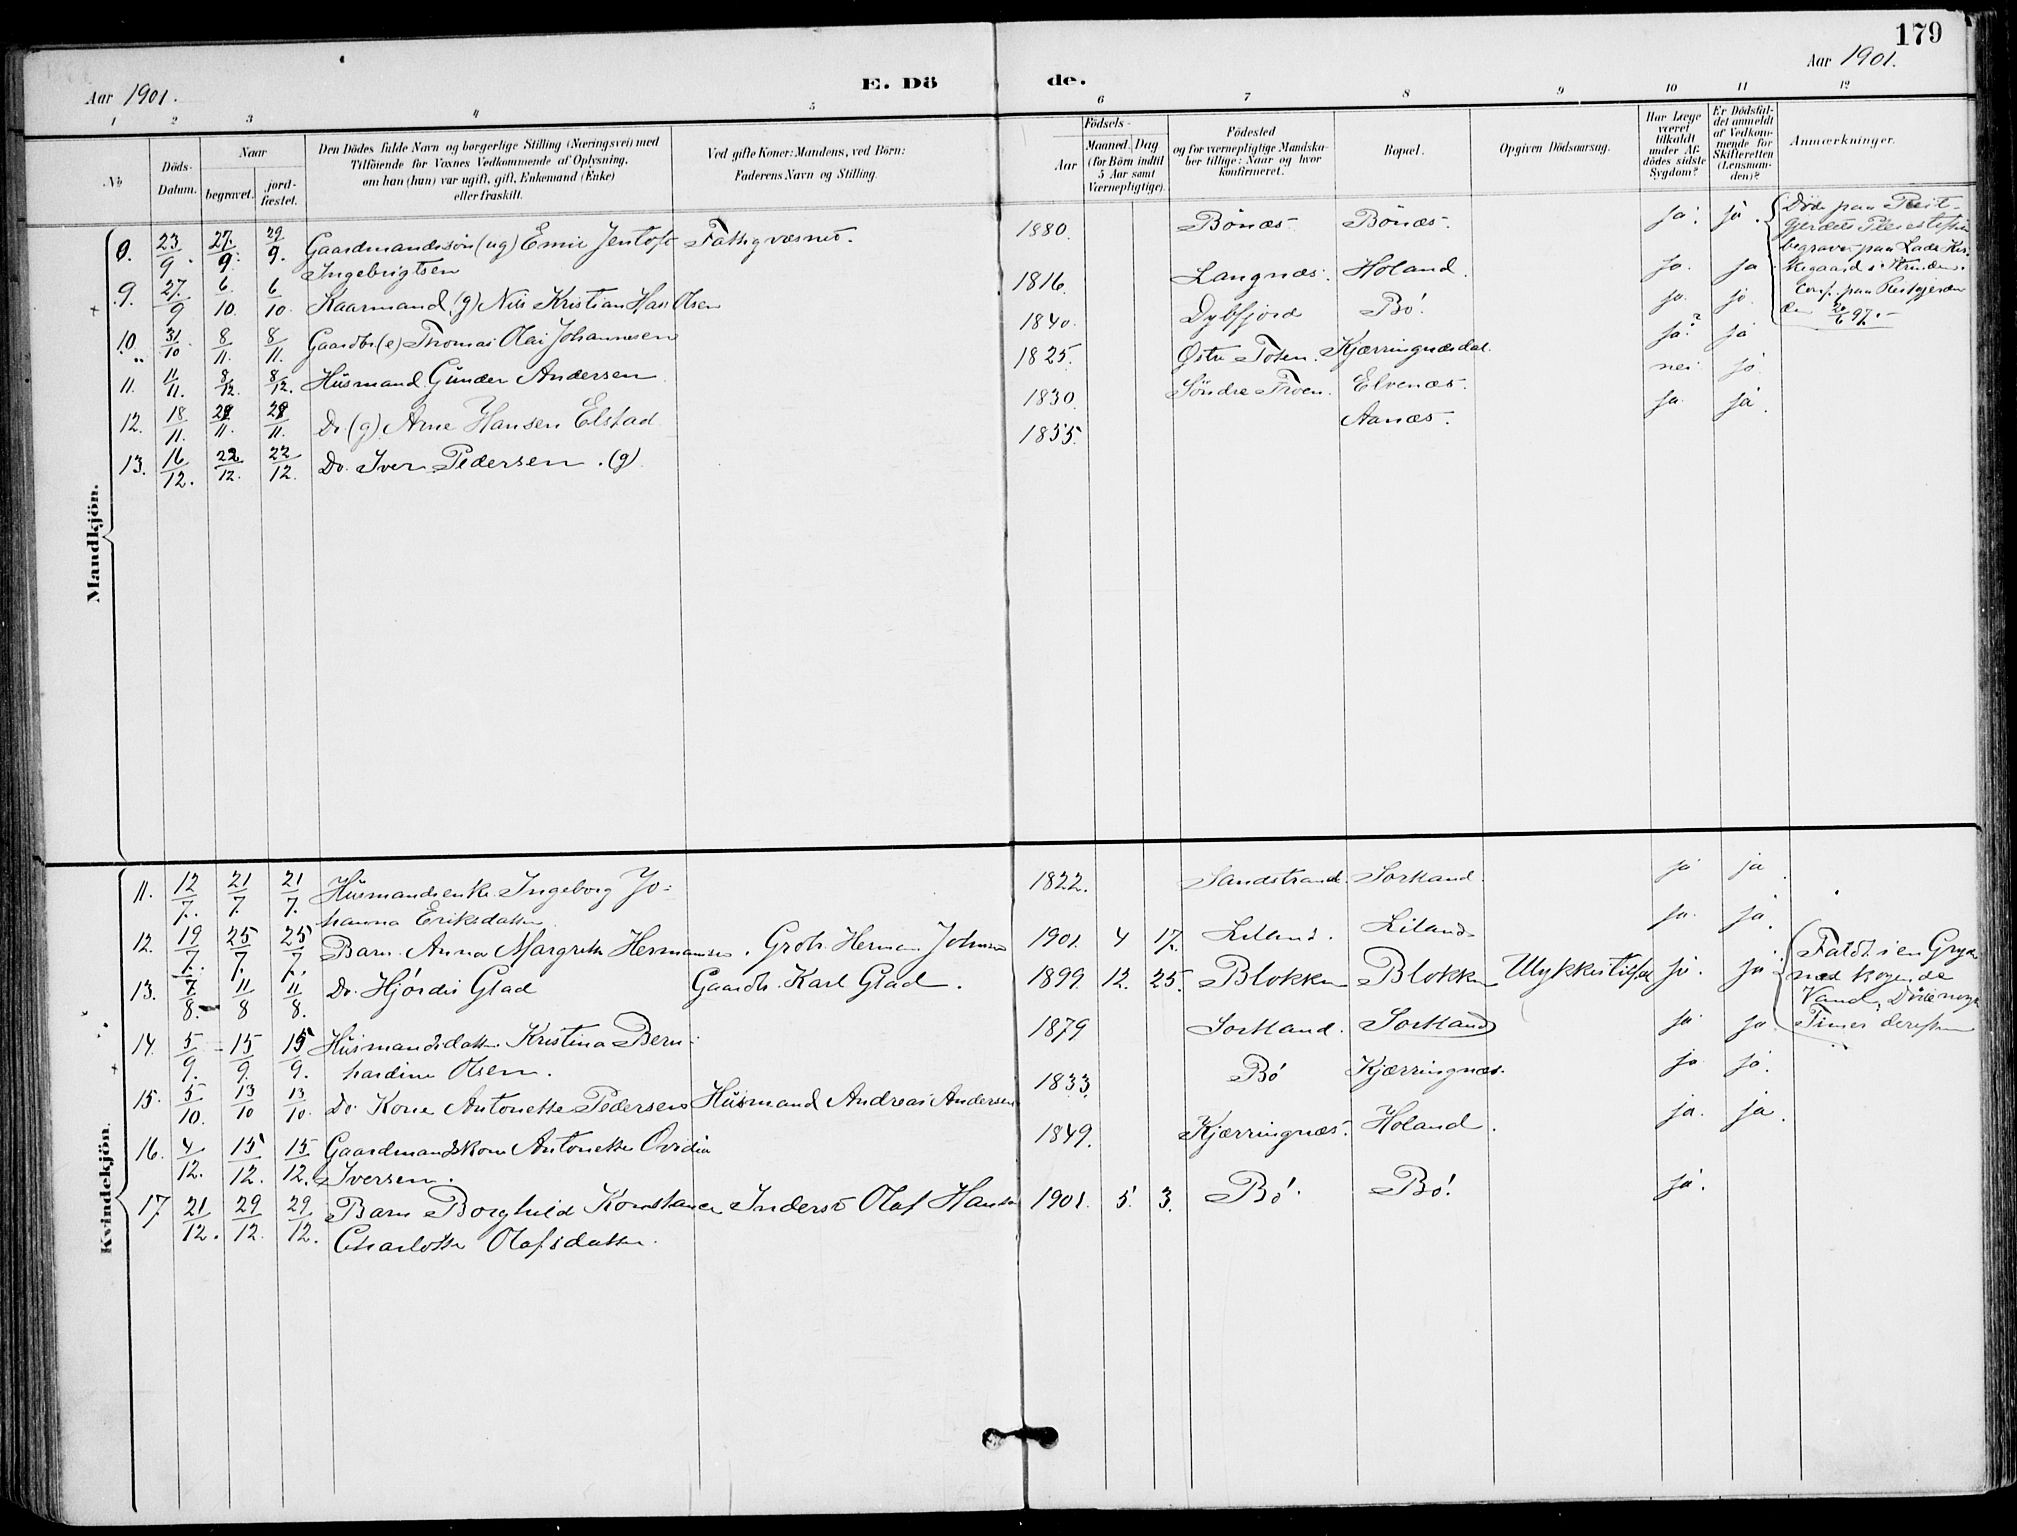 179
Aar 1901.
E. Dö
de.
Aar 1901.
1 2 3 4 5 6 7 8 9 10 11 12
No
Döds-Datum.
Naar
begravet.
jord-fæstet.
Den Dödes fulde Navn og borgerlige Stilling (Næringsvei) med
Tilföiende for Voxnes Vedkommende af Oplysning,
om han (hun) var ugift, gift, Enkemand (Enke)
eller fraskilt.
Ved gifte Koner: Mandens, ved Börn:
Faderens Navn og Stilling.
Födsels-
Aar
Maaned. Dag
(for Börn indtil
5 Aar samt
Værnepligtige).
Födested
og for værnepligtige Mandska-
ber tillige: Naar og hvor
konfirmeret.
Bopæl.
Opgiven Dödsaarsag.
Har Læge
været
tilkaldt
under Af-
dödes sidste
Sygdom?
Er Dödsfal-
det anmeldt
af Vedkom-
mende for
Skifteretten
(Lensman-
den)?
Anmærkninger.
Mandkjön.
8. 23/9. 27/9. 29/9. Gaardmandssön (ug) Emil Jentoft Fattigvæsnet. 1880. Bönæs. Bönæs. ja. ja.
Ingebrigtsen
Döde paa Reit-
gjerdets Pleiestiftelse
begravet paa Lade Kir-
kegaard i Strinden.
Conf. paa Reitgjerdet
den 20/6 97.
9. 27/9 6/10. 6/10. Kaarmand (g) Nils Kristian Has Olsen 1816. Langnæs. Holand. ja. ja
10. 31/10. 8/11. 8/11. Gaardbr (e) Thomas Olai Johannesen 1840. Dybfjord Bö. ja. ja.
11. 11/11. 8/12. 8/12. Husmand Gunder Andersen 1825. Östre Toten. Kjærringnæsdal. ja? ja
12. 18/11. 28/11. 28/11. Do (g) Arne Hansen Elstad 1830. Söndre Froen. Elvenæs. nei ja
13. 16/12. 22/12. 22/12. Do. Iver Pedersen. (g) 1835. Aanæs. ja. ja.
Kvindekjön.
11. 12/7. 21/7. 21/7. Husmandsenke Ingeborg Jo- 1822. Sandstrand. Sortland. ja ja.
hanna Eriksdatter
12. 19/7. 25/7. 25/7. Barn Anna Margrethe Hermansen. Grbr. Herman Johnsen 1901. 4 17. Liland. Liland. ja. ja.
13. 7/8. 11/8 11/8. Do. Hjördis Glad Gaardbr. Karl Glad. 1899. 12. 25. Blokken Blokken Ulykkestilfæl ja. ja.
Faldt i en Gryde
med kogende
Vand. Döde nogle
Timer derefter
14. 5/9. 15/9. 15/9. Husmandsdatter Kristina Bern- 1879 Sortland. Sortland ja ja.
hardine Olsen.
15. 5/10. 13/10 13/10. Do. Kone Antonette Pedersen Husmand Andreas Andersen 1833. Bö Kjærringnæs. ja ja.
16. 4/12. 15/12. 15/12. Gaardmandskone Antonette Ovidia 1849. Kjærringnæs. Holand. ja. ja.
Iversen.
17 21/12. 29/12. 29/12. Barn Borghild Konstance Inderst Olaf Hansen 1901. 5. 3. Bö. Bö. ja.
Charlotte Olafsdatter.